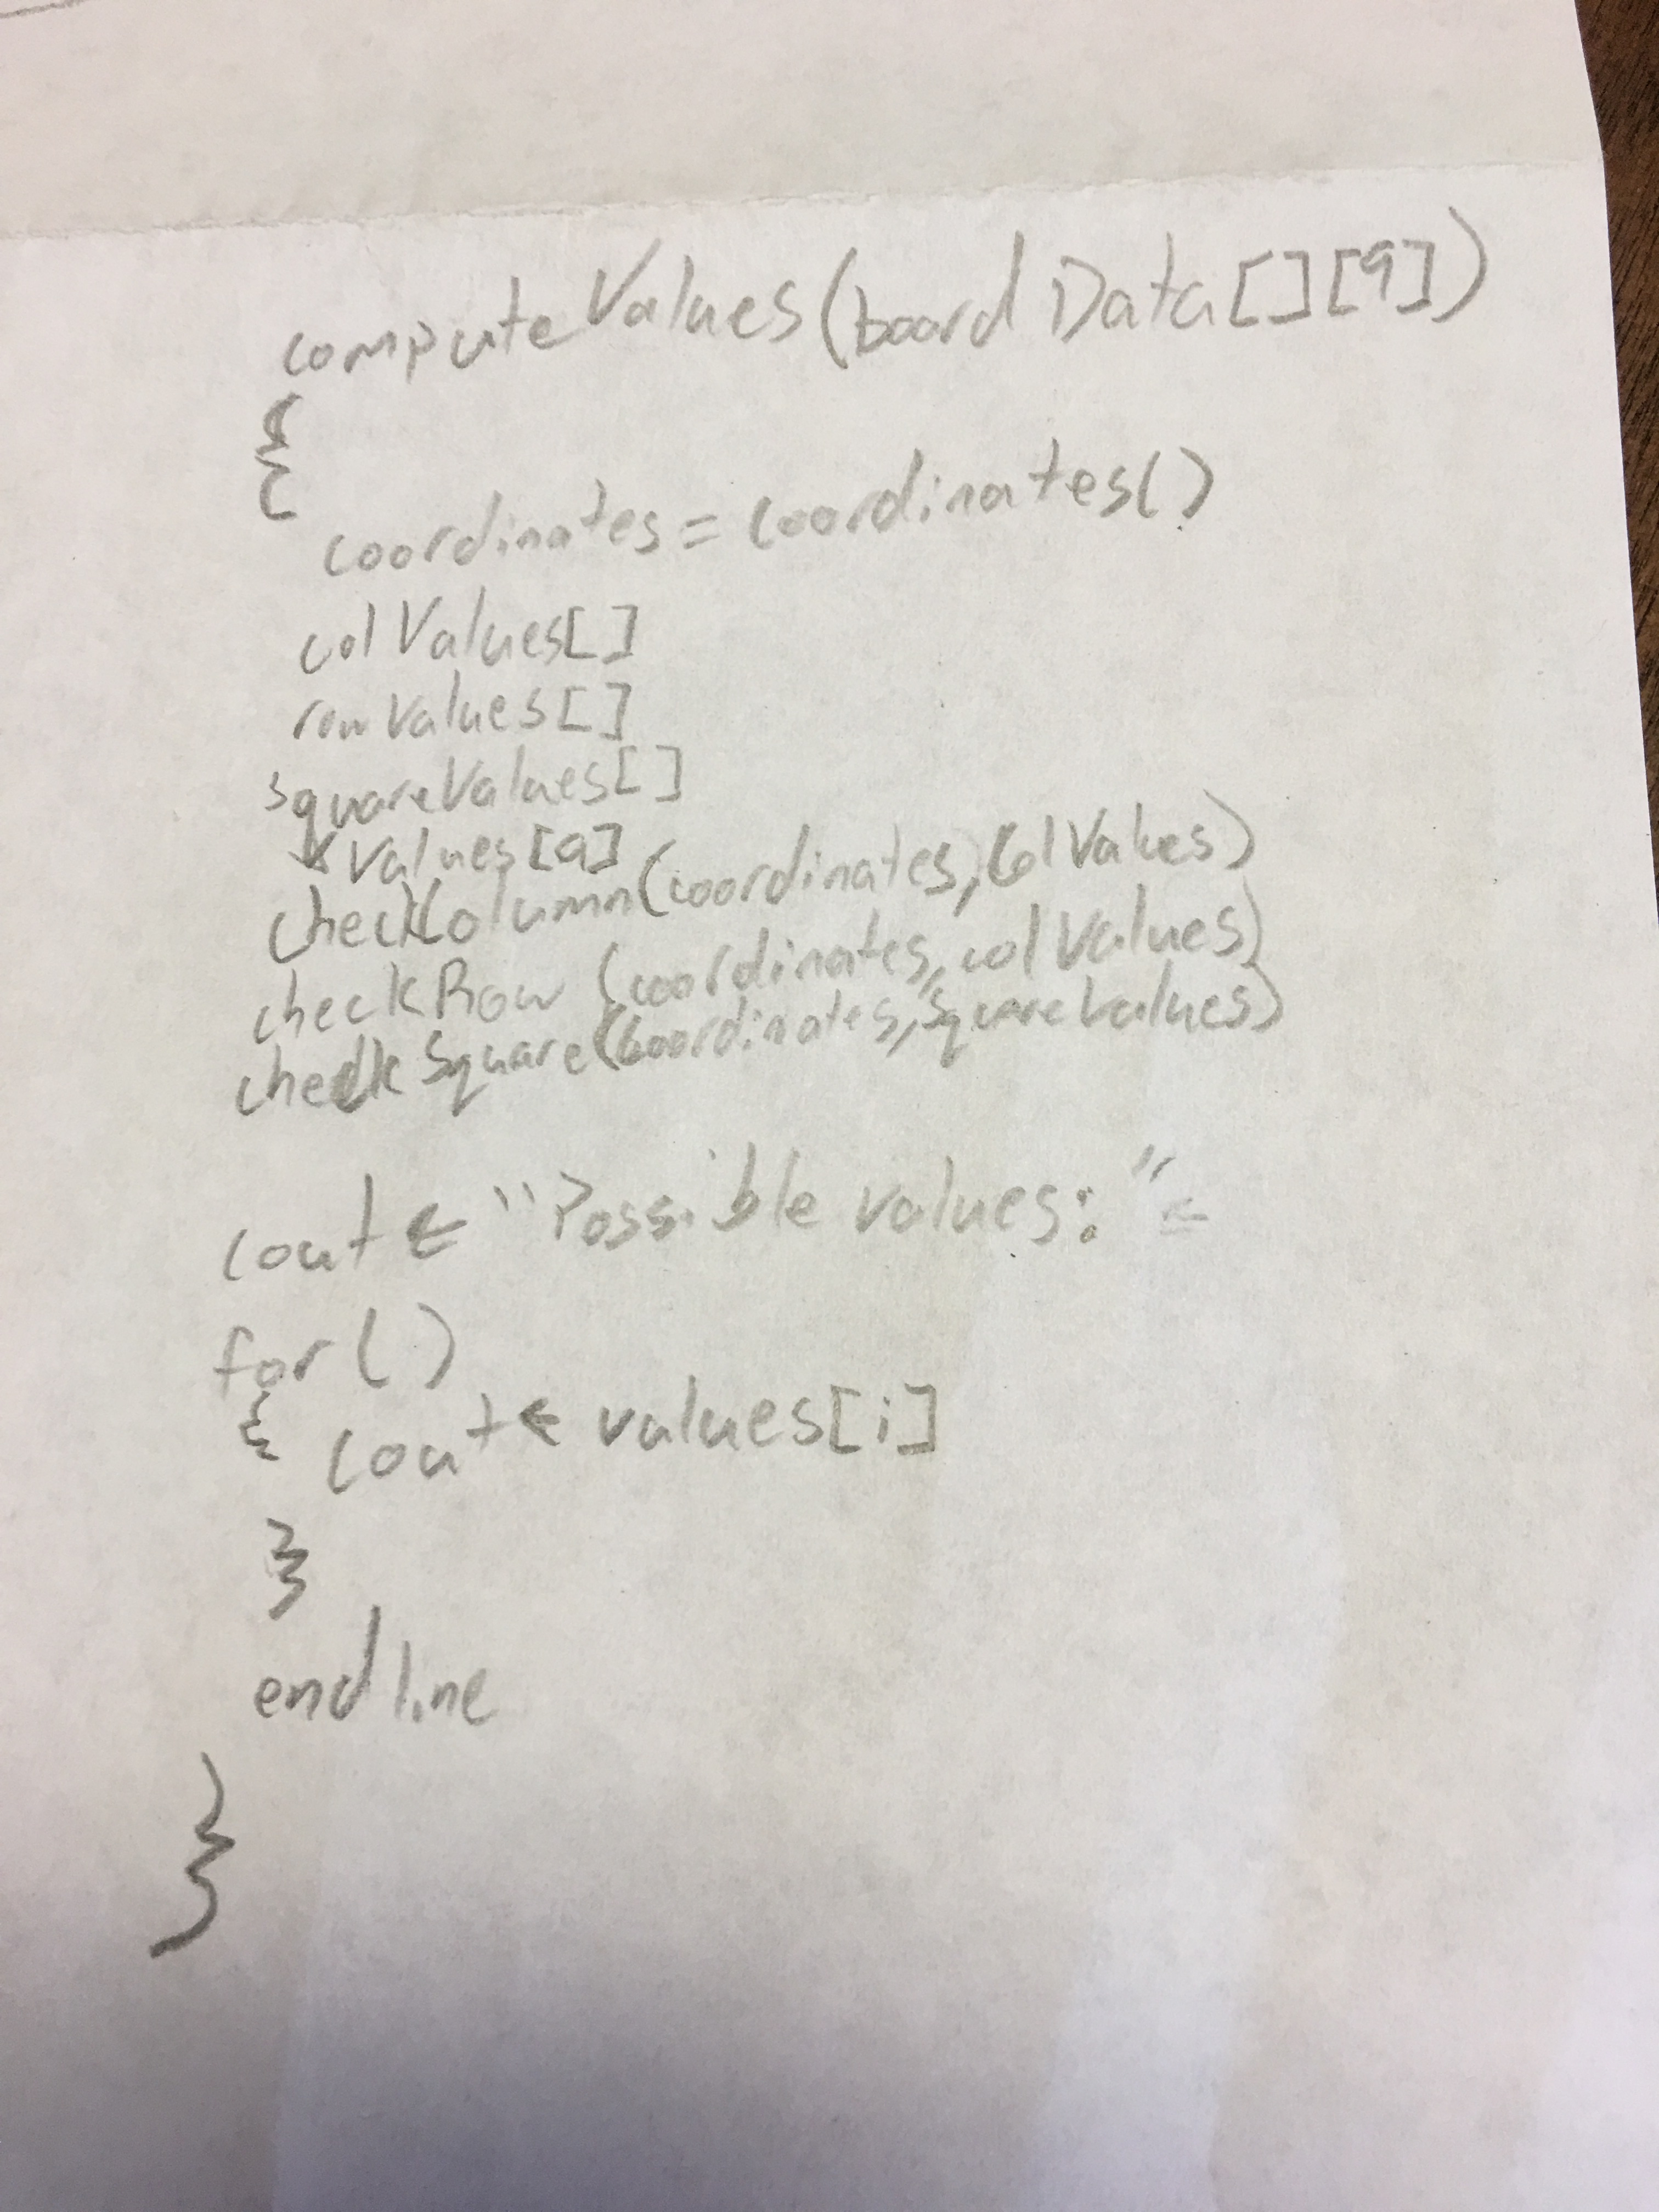 computeValues(boardData[][9])
{
coordinates = coordinates()
colValues[]
rowValues[]
squareValues[]
values[9]
checkColumn(coordinates, colValues)
checkRow (coordinates, colValues)
checkSquare(coordinates, squareValues)
cout ← "Possible values: "
for()
{ cout ← values[i]
}
endline
}